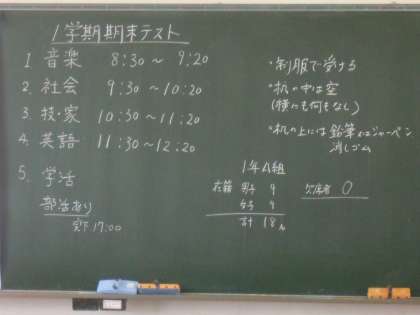 1学期期末テスト
1 音楽 8:30～9:20
2. 社会 9:30～10:20
3. 技・家 10:30～11:20
4. 英語 11:30～12:20
5. 学活
部活あり
完下 17:00
・制服で受ける
・机の中は空
(横にも何もなし)
・机の上には鉛筆orシャーペン
消しゴム
1年A組
在籍 男子 9
女子 9
計 18人
欠席者 0